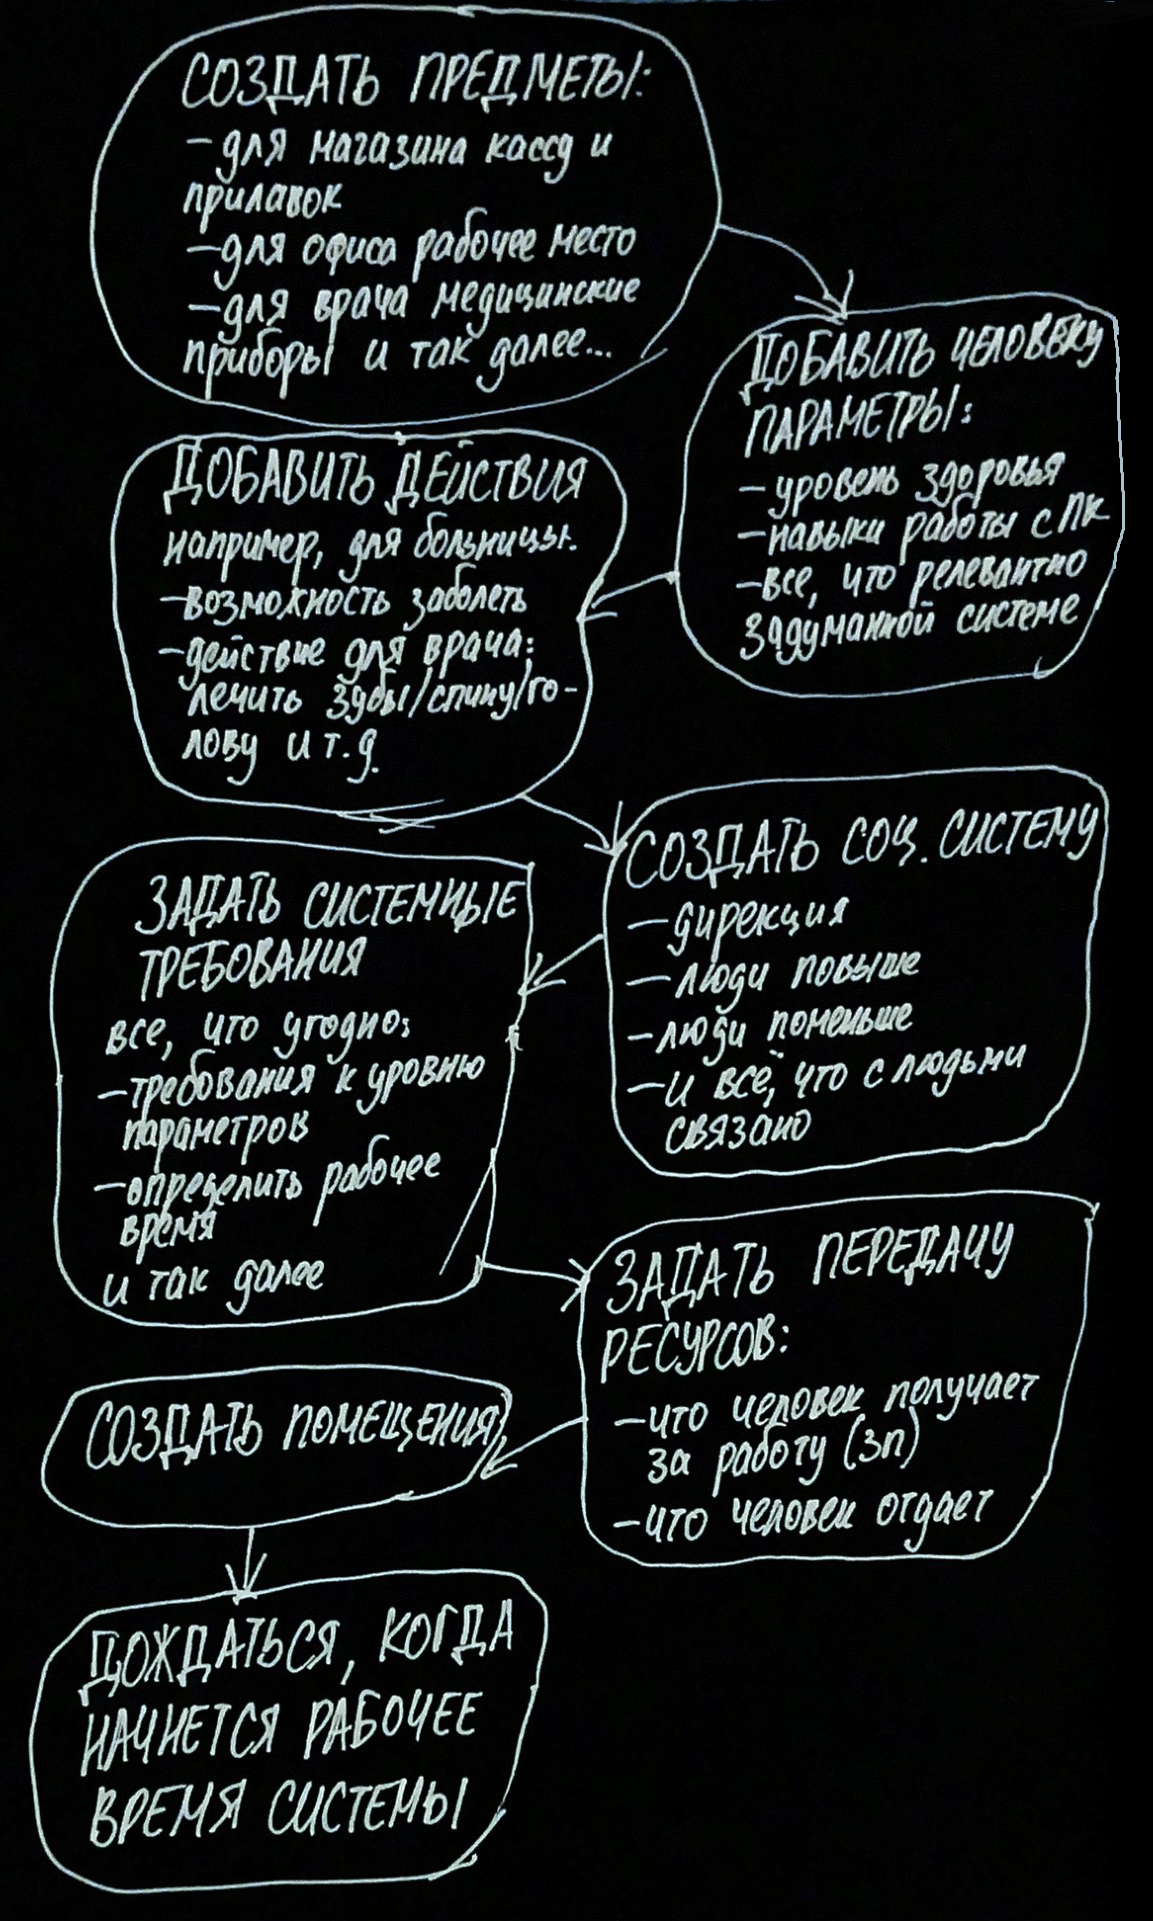 СОЗДАТЬ ПРЕДМЕТЫ:
- для магазина кассу и
прилавок
- для офиса рабочее место
- для врача медицинские
приборы и так далее...
ДОБАВИТЬ ЧЕЛОВЕКУ
ПАРАМЕТРЫ:
- уровень здоровья
- навыки работы с ПК
- все, что релевантно
задуманной системе
ДОБАВИТЬ ДЕЙСТВИЯ
например, для больницы:
- возможность заболеть
- действие для врача:
лечить зубы/спину/го-
лову и т.д.
СОЗДАТЬ СОЦ. СИСТЕМУ
- дирекция
- люди повыше
- люди поменьше
- и всё, что с людьми
связано
ЗАДАТЬ СИСТЕМНЫЕ
ТРЕБОВАНИЯ
все, что угодно:
- требования к уровню
параметров
- определить рабочее
время
и так далее
ЗАДАТЬ ПЕРЕДАЧУ
РЕСУРСОВ:
- что человек получает
за работу (зп)
- что человек отдает
СОЗДАТЬ ПОМЕЩЕНИЯ
ДОЖДАТЬСЯ, КОГДА
НАЧНЕТСЯ РАБОЧЕЕ
ВРЕМЯ СИСТЕМЫ